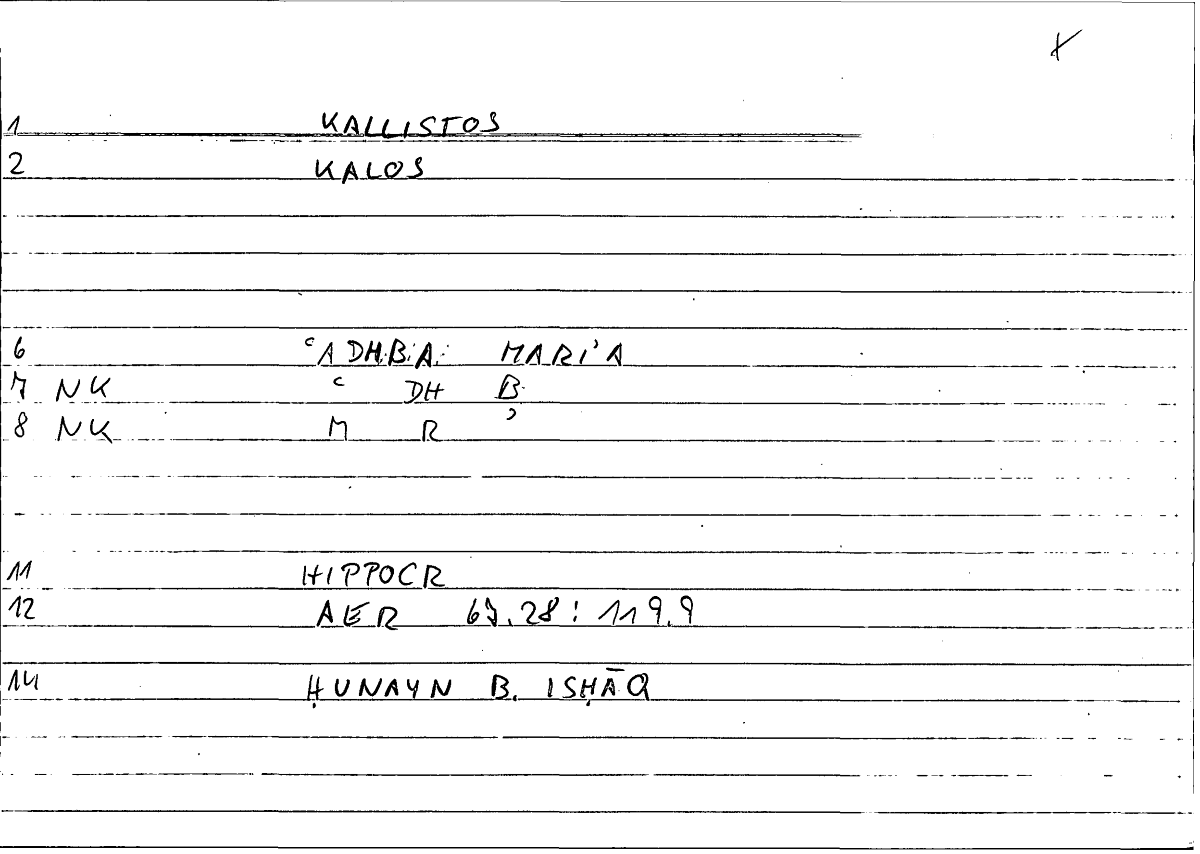 K
1 KALLISTOS
2 KALOS
6 ʿADHBA MARIʾA
7 NK ʿ DH B
8 NK M R ʾ
11 HIPPOCR
12 AER 67.28 : 119.9
14 ḤUNAYN B. ISḤĀQ